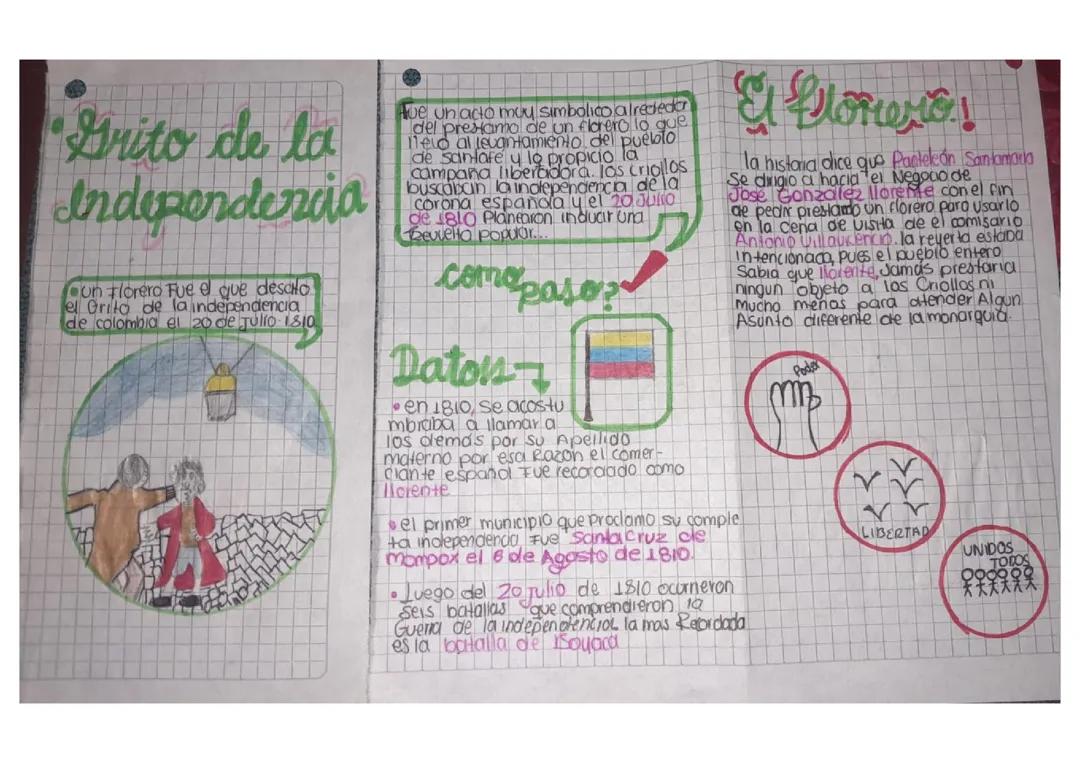 Grito de la
Independencia
• un florero Fue el que desato
el Grito de la independencia
de colombia el 20 de julio 1810
Fue un acto muy simbolico alrededor
del prestamo de un florero lo que
llevo al levantamiento del pueblo
de santafe y lo propicio la
campaña libertadora. los criollos
buscaban la independencia de la
corona española y el 20 Julio
de 1810 Planearon inducir una
Revuelta popular...
como paso?
Datos
• en 1810, se acostu
mbraba a llamar a
los demás por su Apellido
materno por esa Razon el comer-
ciante español Fue recordado como
llorente
• el primer municipio que proclamo su comple
ta independencia Fue Santa Cruz de
Mompox el 6 de Agosto de 1810.
• Luego del 20 julio de 1810 ocurrieron
seis batallas que comprendieron la
Guerra de la independencia la mas Recordada
es la batalla de Boyaca
El Florero!
la historia dice que Panteleón Santamaria
Se dirigio a hacia el Negocio de
José González llorente con el fin
de pedir prestado un florero para usarlo
en la cena de visita de el comisario
Antonio Villavicencio. la reyerta estaba
intencionada, pues el pueblo entero
sabia que llorente, Jamás prestaria
ningun objeto a los Criollos ni
mucho menos para atender Algun
Asunto diferente de la monarquia.
Poder
LIBERTAD
UNIDOS
TODOS